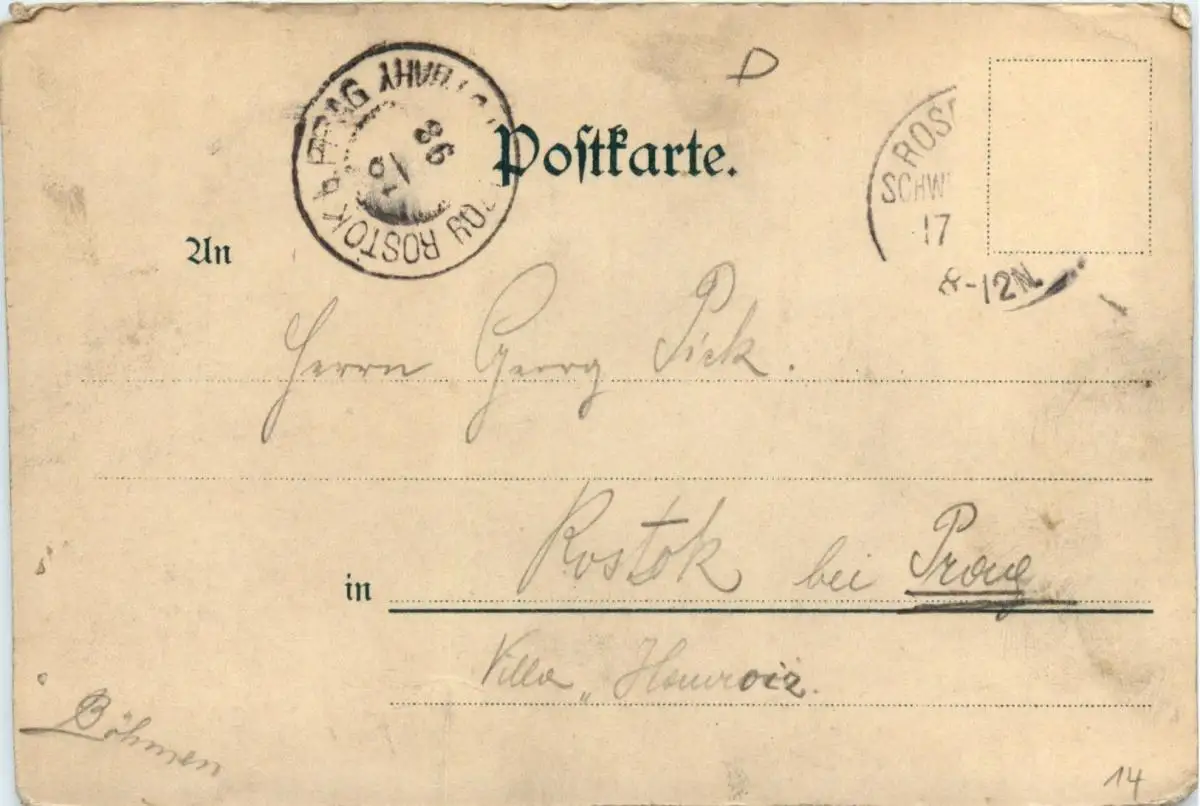 D
Postkarte.
ROSTOK b. PRAG
98
ROS
SCHW
17
8-12N.
An
Herrn Georg Pick.
in Rostok bei Prag
Villa „
Böhmen
14